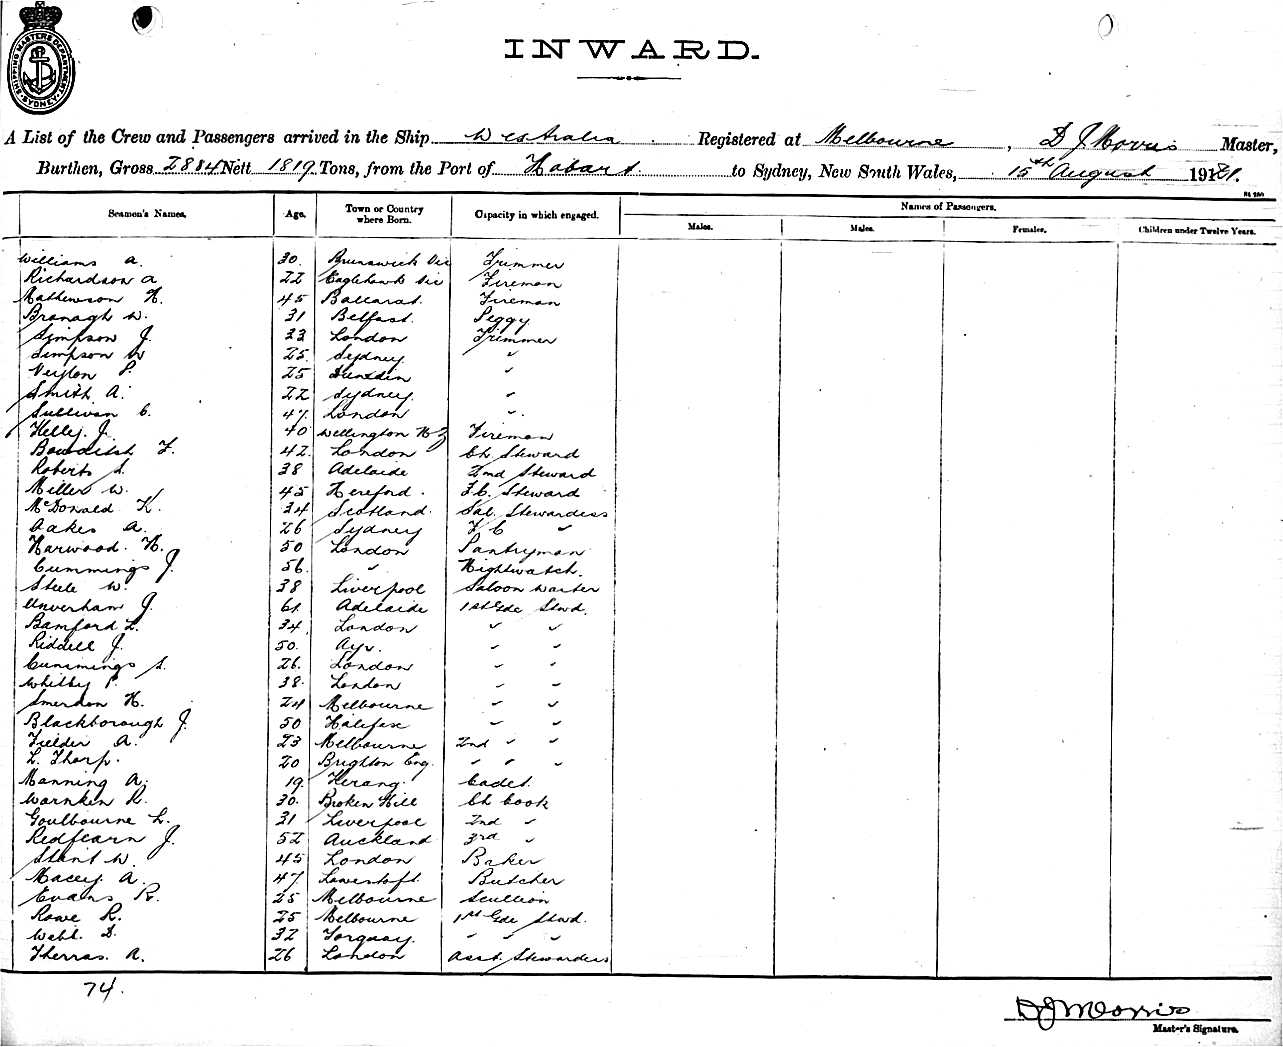 SHIPPING MASTERS DEPARTMENT SYDNEY
INWARD.
A List of the Crew and Passengers arrived in the Ship Westralia Registered at Melbourne, D J Morris Master,
Burthen, Gross 2884 Nett 1819 Tons, from the Port of Hobart to Sydney, New South Wales, 15th August 1921.
Names of Passengers.
Seamen's Names. Age. Town or Country where Born. Capacity in which engaged. Males. Males. Females. Children under Twelve Years.
Williams A. 30. Brunswick Vic Trimmer
Richardson A 22 Eaglehawk Vic Fireman
Mathewson H. 45 Ballarat. Fireman
Branagh W. 31 Belfast. Peggy
Simpson J. 23 London Trimmer
Simpson W 25. Sydney. "
P. 25 Dunedin "
Smith A. 22 Sydney. "
Sullivan C. 47. London "
Kelly. J. 40 Wellington N Z Fireman
Bowditch F. 42. London Ch Steward
Roberts S. 38 Adelaide 2nd Steward
Miller W. 45 Hereford. F.C. Steward
McDonald K. 34 Scotland. Sal. Stewardess
Oakes A. 26 Sydney F C "
Harwood. H. 50 London Pantryman
Cummings J. 56. " Nightwatch.
Steele W. 38 Liverpool Saloon Waiter
Unverhau J. 61 Adelaide 1st Gde Stwd.
Bamford L. 34 London " "
Riddell J. 50. Ayr. " "
Cummings S. 26. London " "
Whitby P. 38. London " "
Smerdon H. 24 Melbourne " "
Blackborough J. 50 Halifax " "
Fielder A. 23 Melbourne 2nd " "
L. Thorp. 20 Brighton Eng. " " "
Manning A. 19. Kerang. Cadet.
Warnken R. 30. Broken Hill Ch Cook
Goulbourne L. 31 Liverpool 2nd "
Redfearn J. 52 Auckland 3rd "
W. 45 London Baker
Macey. A. 47 Lowestoft. Butcher
Evans R. 25 Melbourne Scullion
Rowe R. 25 Melbourne 1st Gde Stwd.
Webb. D. 32 Torquay. " " "
Therras. A. 26 London Asst Stewardess
74.
D J Morris
Master's Signature.